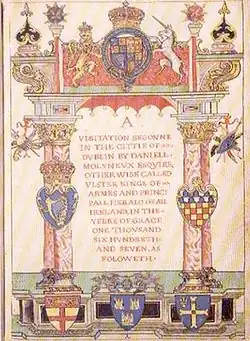 A
VISITATION BEGONNE
IN THE CITTE OF
DVBLIN BY DANIELL
MOLYNEVX ESQVIRE
OTHERWISE CALLED
VLSTER KINGE OF
ARMES AND PRINCI
PALL HERALD OF ALL
IRELAND, IN THE
YEERE OF GRACE
ONE THOVSAND
SIX HVNDRETH
AND SEVEN, AS
FOLOWETH.